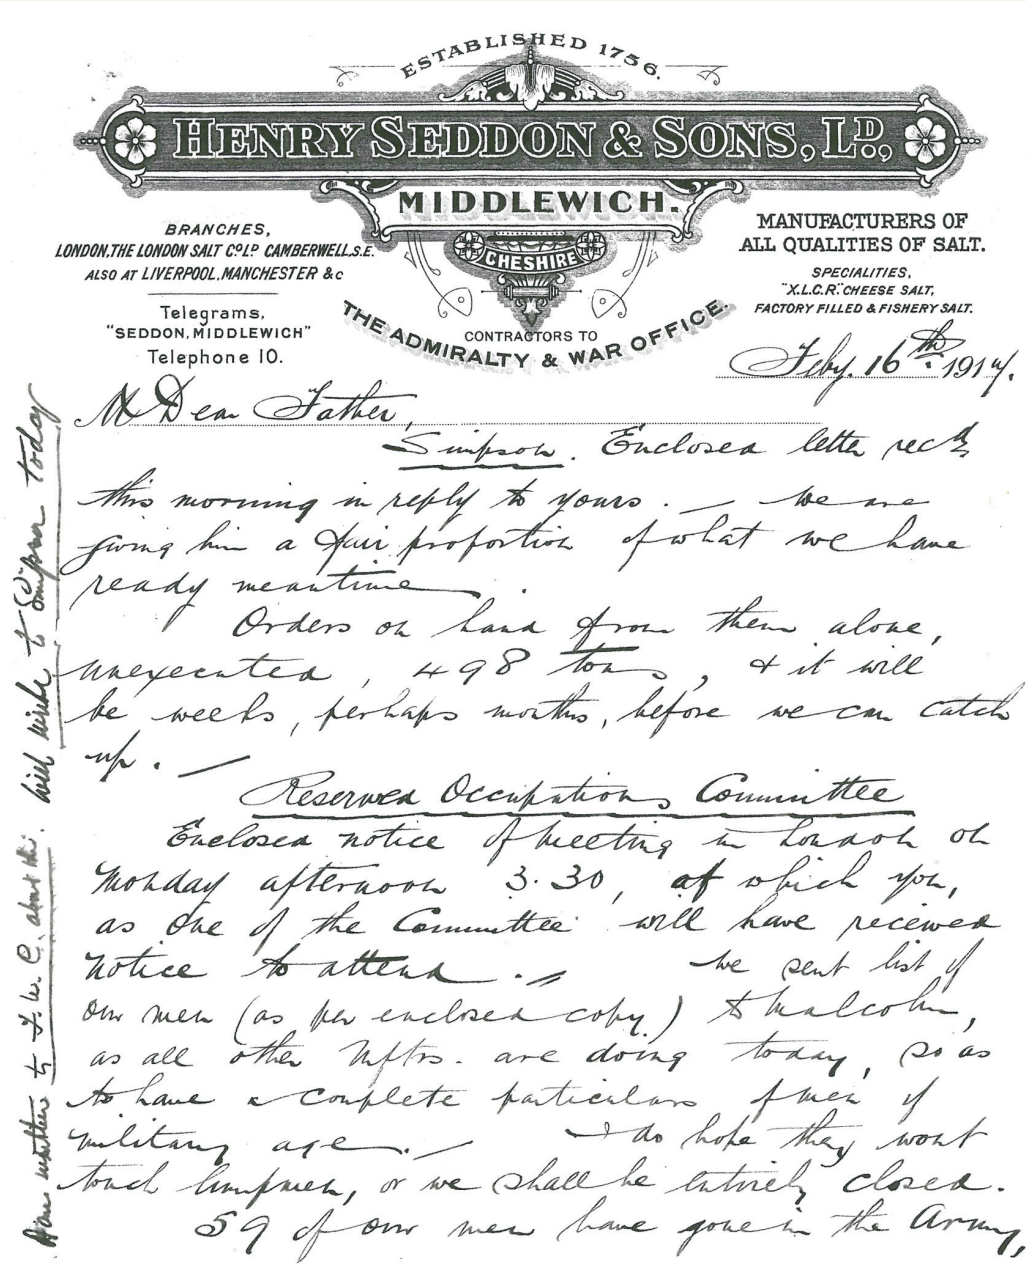 ESTABLISHED 1756.
HENRY SEDDON & SONS, LD.,
MIDDLEWICH.
CHESHIRE
BRANCHES,
LONDON, THE LONDON SALT CO. LD. CAMBERWELL. S.E.
ALSO AT LIVERPOOL, MANCHESTER &c
Telegrams,
"SEDDON, MIDDLEWICH"
Telephone 10.
MANUFACTURERS OF
ALL QUALITIES OF SALT.
SPECIALITIES,
"X.L.C.R." CHEESE SALT,
FACTORY FILLED & FISHERY SALT.
CONTRACTORS TO
THE ADMIRALTY & WAR OFFICE.
Feby. 16th. 1917.
M Dear Father,
Simpson. Enclosed letter recd
this morning in reply to yours. — We are
giving him a fair proportion of what we have
ready meantime.
Orders on hand from them alone,
unexecuted, 498 tons, & it will
be weeks, perhaps months, before we can catch
up. —
Reserved Occupations Committee
Enclosed notice of meeting in London on
Monday afternoon 3.30, of which you,
as one of the Committee will have received
notice to attend. We sent list of
our men (as per enclosed copy) to Malcolm,
as all other Mftrs. are doing today, so as
to have a complete particulars of men of
military age. — I do hope they wont
touch lumpmen, or we shall be entirely closed.
59 of our men have gone in the Army,
Have written to F. W. C. about this. Will write to Simpson today